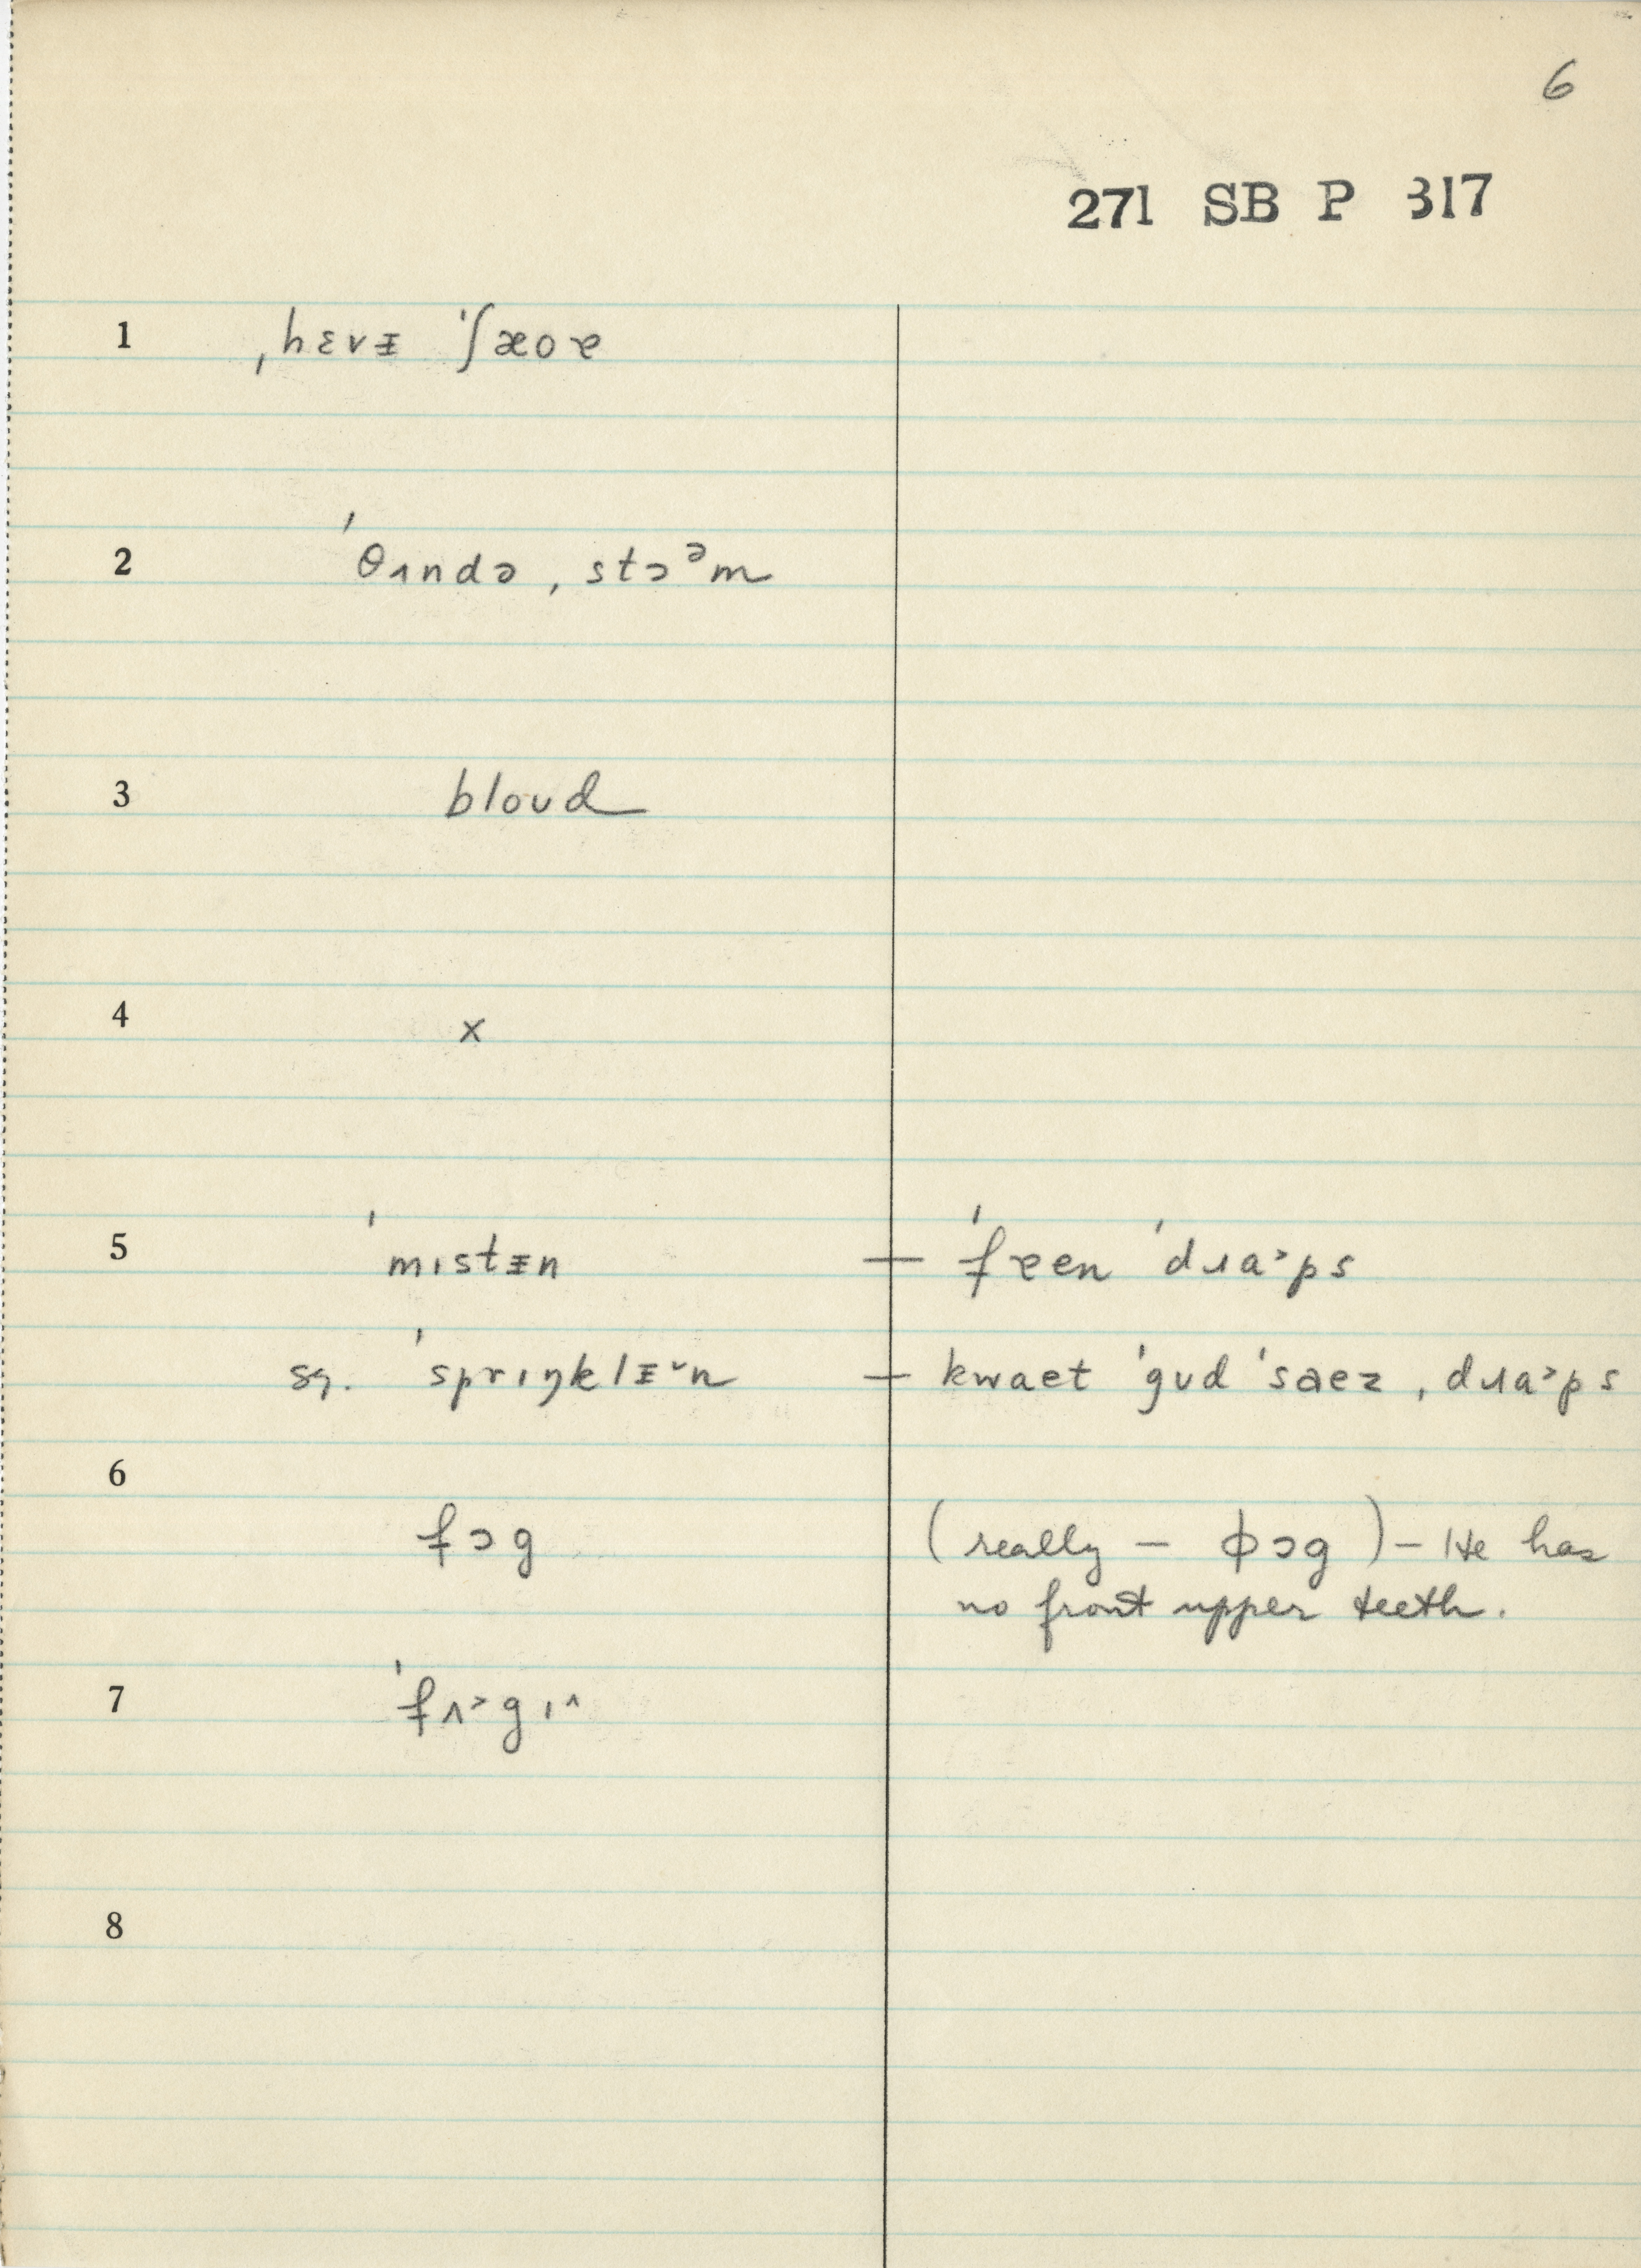 6
271 SB P 317
1 ˌhɛvᵻ ˈʃæoɐ
2 ˈθʌndə ˌstɔᵊm
3 bloud
4 x
5 ˈmɪstᵻn — ˈfɐen ˈdɹɑ˃ps
sg. ˈsprɪŋklᵻ˅n — kwaet ˈgʊd ˈsaez ˌdɹɑ˃ps
6
fɔg (really — ɸɔg) — He has
no front upper teeth.
7 ˈfʌ˃gɪ^
8